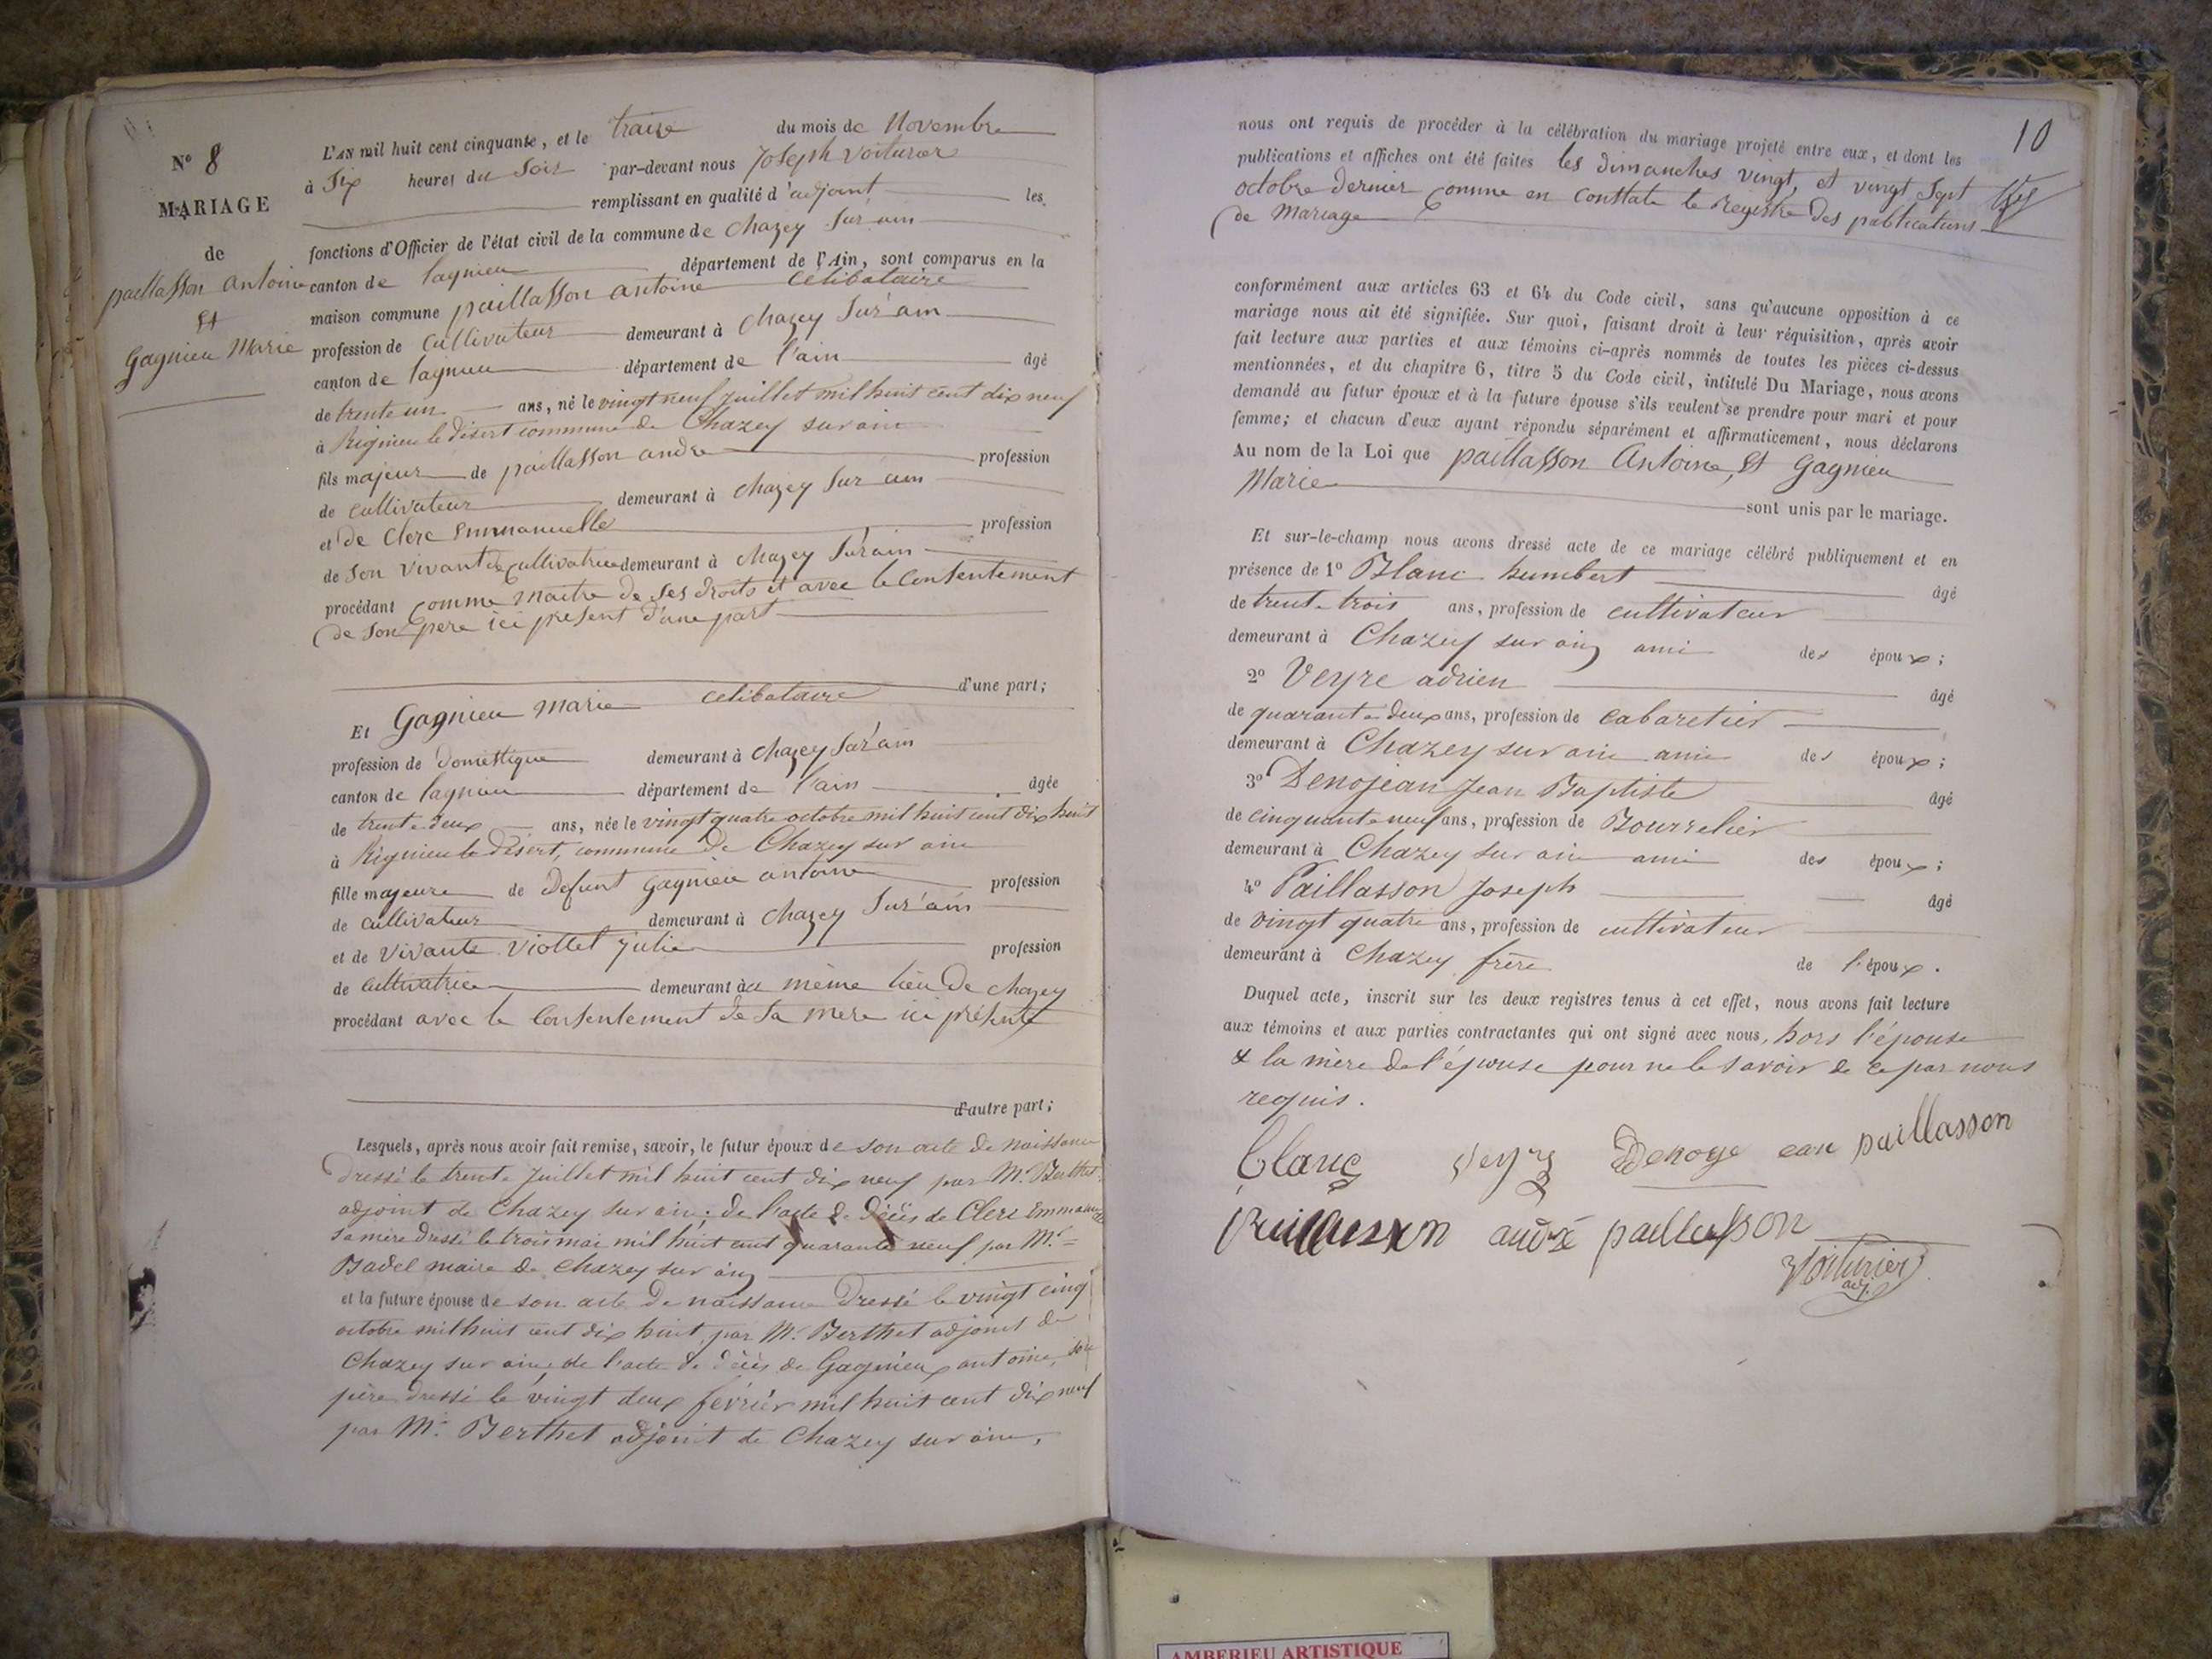 N° 8
MARIAGE
de
paillasson antoine
Et
Gagnieu Marie
L'AN mil huit cent cinquante, et le traize du mois de Novembre
à Six heures du Soir par-devant nous Joseph voiturier
remplissant en qualité d'adjoint les
fonctions d'Officier de l'état civil de la commune de chazey Sur ain
canton de lagnieu département de l'Ain, sont comparus en la
maison commune paillasson antoine célibataire
profession de cultivateur demeurant à chazey Sur ain
canton de lagnieu département de l'ain âgé
de trente un ans, né le vingt neuf juillet mil huit cent dix neuf
à Rignieu le désert commune de Chazey sur ain
fils majeur de paillasson andre profession
de cultivateur demeurant à chazey Sur ain
et de Clerc Emmanuelle profession
de Son vivant de cultivatrice demeurant à chazey Sur ain
procédant comme maitre de ses droits et avec le Consentement
de Son pere ici présent d'une part
d'une part;
Et Gagnieu Marie célibataire
profession de domestique demeurant à chazey Sur ain
canton de lagnieu département de l'ain âgée
de trente deux ans, née le vingt quatre octobre mil huit cent dix huit
à Rignieu le désert, commune de Chazey sur ain
fille majeure de défunt Gagnieu antoine profession
de cultivateur demeurant à chazey Sur ain
et de vivante viollet julie profession
de cultivatrice demeurant au même lieu de chazey
procédant avec le Consentement de Sa mere ici présente
d'autre part;
Lesquels, après nous avoir fait remise, savoir, le futur époux de son acte de naissance
dressé le trente juillet mil huit cent dix neuf par Mr. Berthet
adjoint de Chazey sur ain; de l'acte de décès de Clerc Emmanuelle
sa mère dressé le trois mai mil huit cent quarante neuf par Mr.
Badel maire de Chazey sur ain
et la future épouse de son acte de naissance dressé le vingt cinq
octobre mil huit cent dix huit, par Mr. Berthet adjoint de
Chazey sur ain; de l'acte de décès de Gagnieux antoine, son
père dressé le vingt deux février mil huit cent dix neuf
par Mr. Berthet adjoint de Chazey sur ain,
10
nous ont requis de procéder à la célébration du mariage projeté entre eux, et dont les
publications et affiches ont été faites les dimanches vingt, et vingt Sept
octobre dernier comme en constate le Registre des publications
de Mariage
conformément aux articles 63 et 64 du Code civil, sans qu'aucune opposition à ce
mariage nous ait été signifiée. Sur quoi, faisant droit à leur réquisition, après avoir
fait lecture aux parties et aux témoins ci-après nommés de toutes les pièces ci-dessus
mentionnées, et du chapitre 6, titre 5 du Code civil, intitulé Du Mariage, nous avons
demandé au futur époux et à la future épouse s'ils veulent se prendre pour mari et pour
femme; et chacun d'eux ayant répondu séparément et affirmativement, nous déclarons
Au nom de la Loi que paillasson Antoine, Et Gagnieu
Marie
sont unis par le mariage.
Et sur-le-champ nous avons dressé acte de ce mariage célébré publiquement et en
présence de 1° Blanc humbert âgé
de trente trois ans, profession de cultivateur
demeurant à Chazey sur ain ami des époux;
2° Veyre adrien âgé
de quarante deux ans, profession de cabaretier
demeurant à Chazey sur ain ami des époux;
3° Denojean Jean Baptiste âgé
de cinquante neuf ans, profession de Bourrelier
demeurant à Chazey sur ain ami des époux;
4° Paillasson Joseph âgé
de vingt quatre ans, profession de cultivateur
demeurant à Chazey frère de l'époux.
Duquel acte, inscrit sur les deux registres tenus à cet effet, nous avons fait lecture
aux témoins et aux parties contractantes qui ont signé avec nous, hors l'épouse
& la mère de l'épouse pour ne le savoir de ce par nous
requis.
Blanc Veyre Denoje ean paillasson
Paillasson andré paillasson
Voiturier
adj.
AMBERIEU ARTISTIQUE